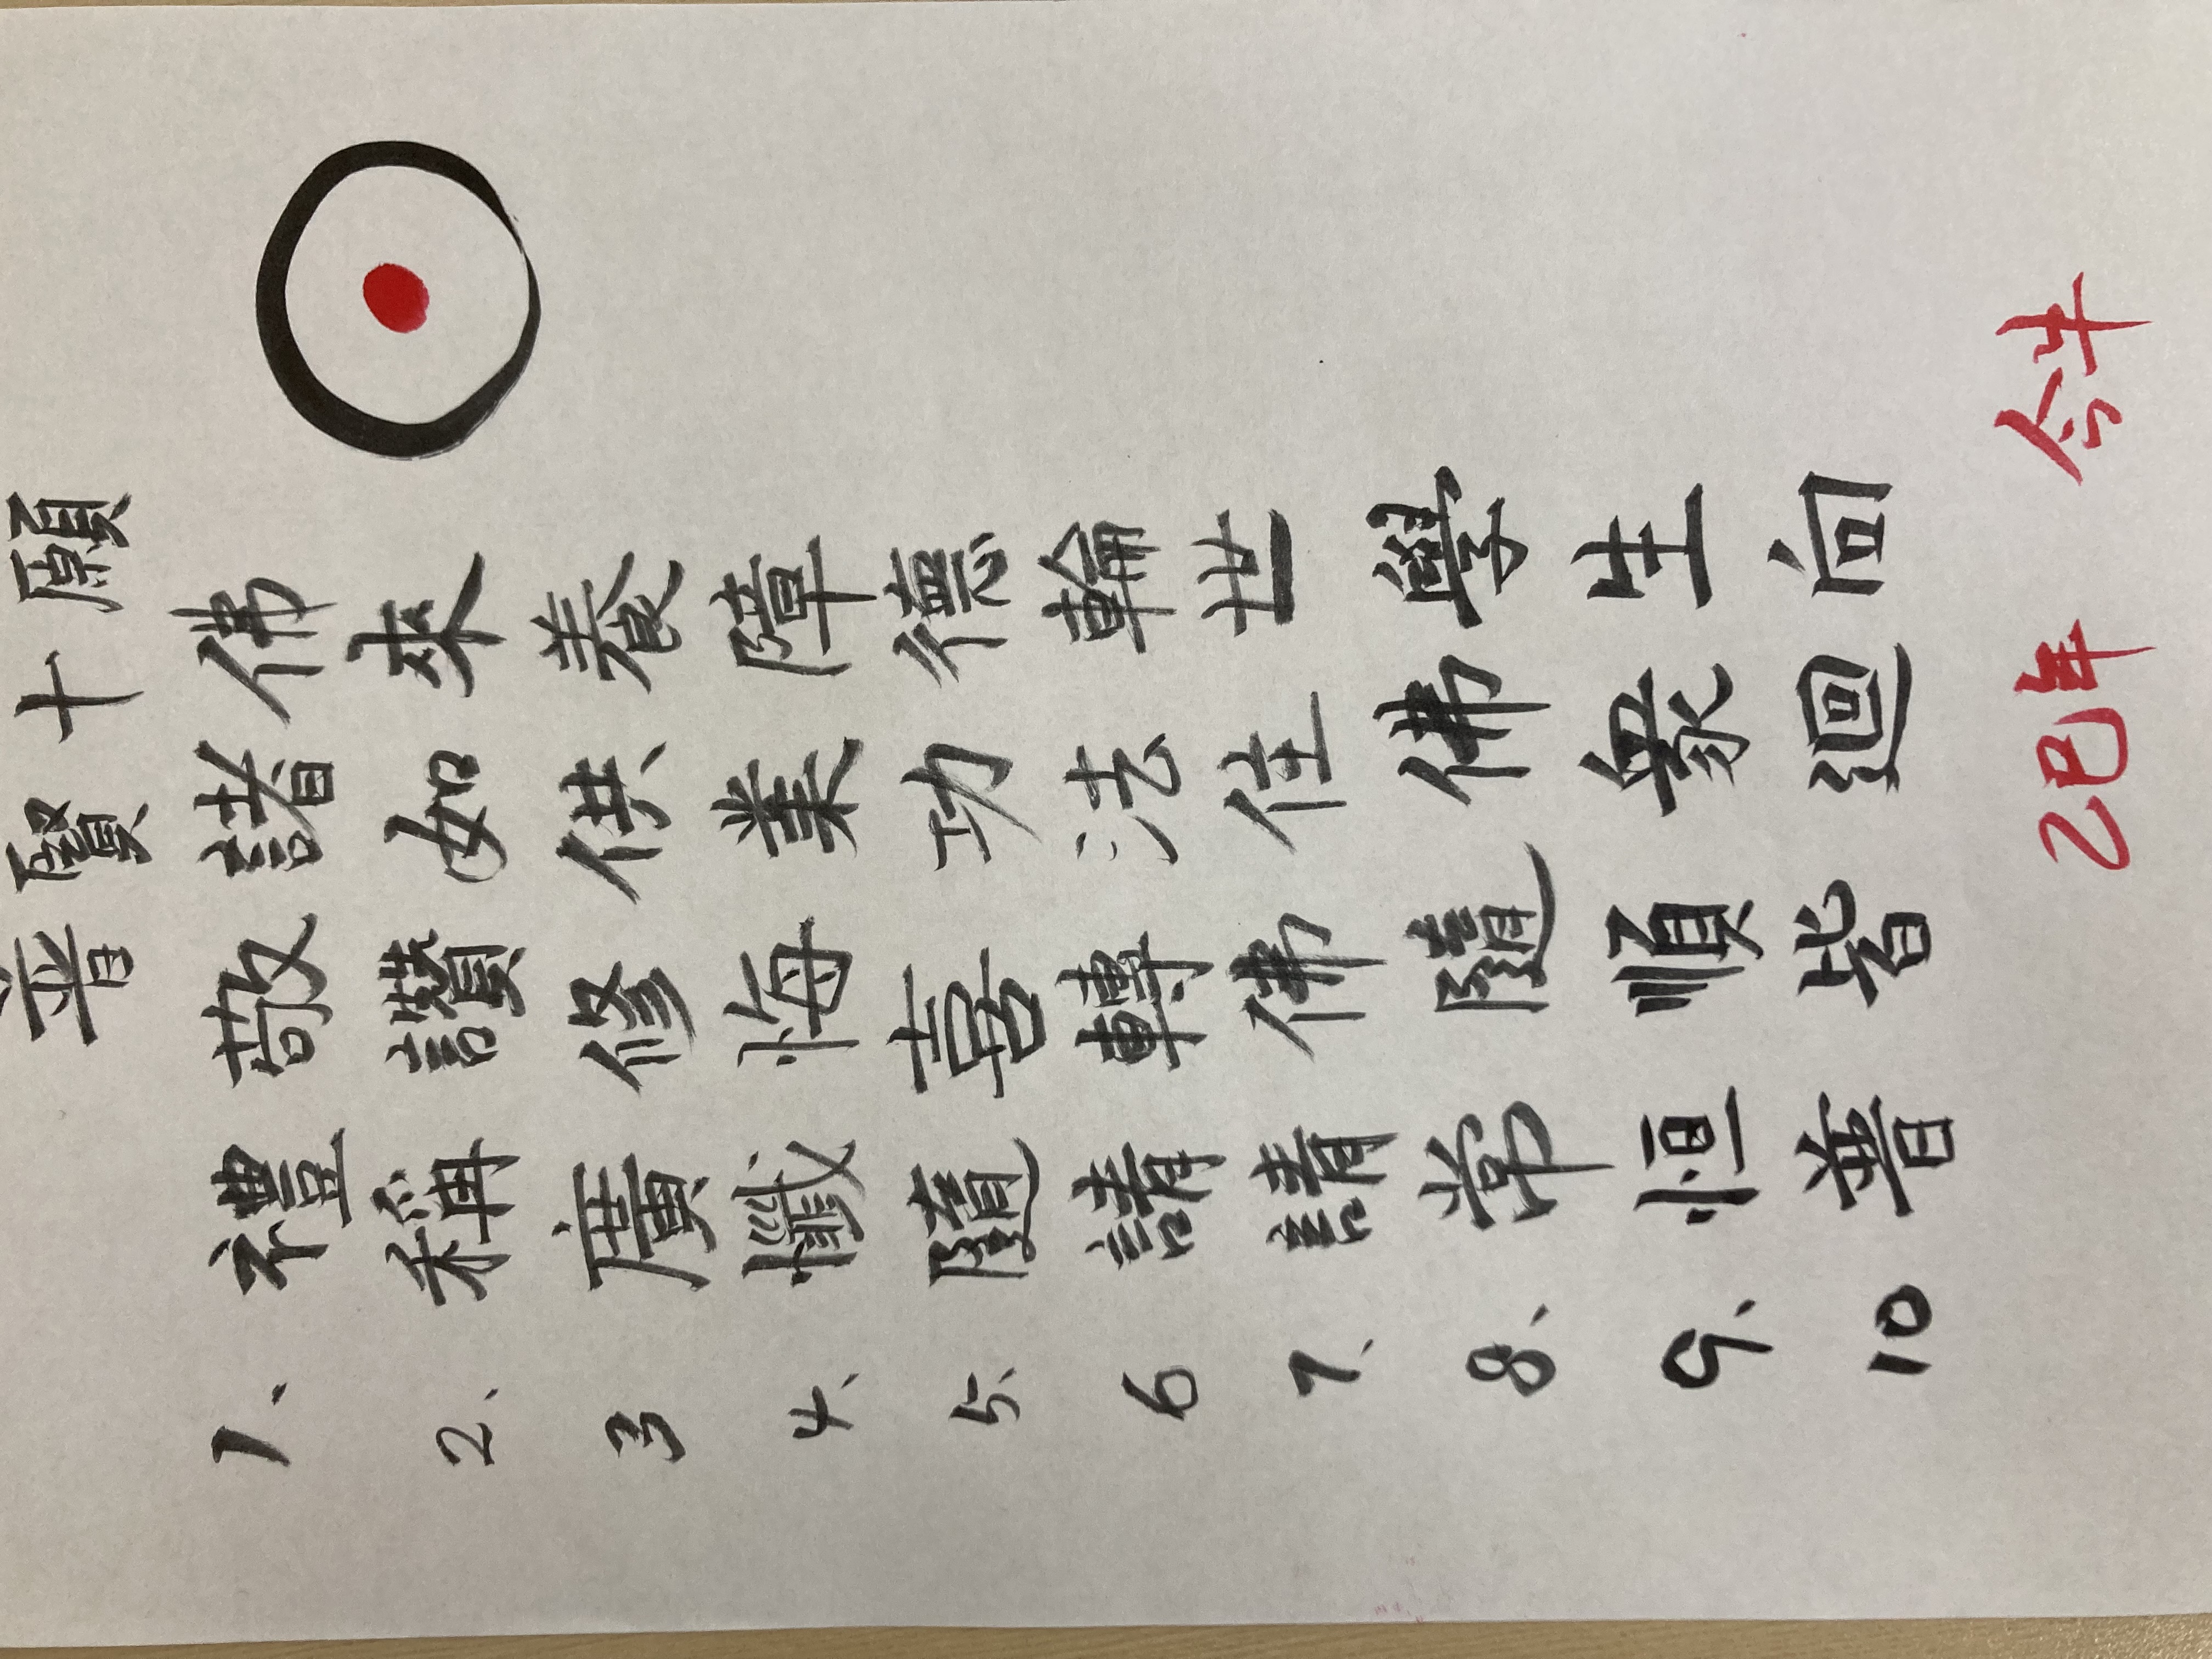 普賢十願
1、禮敬諸佛
2、稱讚如來
3 廣修供養
4、懺悔業障
5、隨喜功德
6 請轉法輪
7、請佛住世
8、常隨佛學
9、恒順眾生
10 普皆迴向
乙巳年